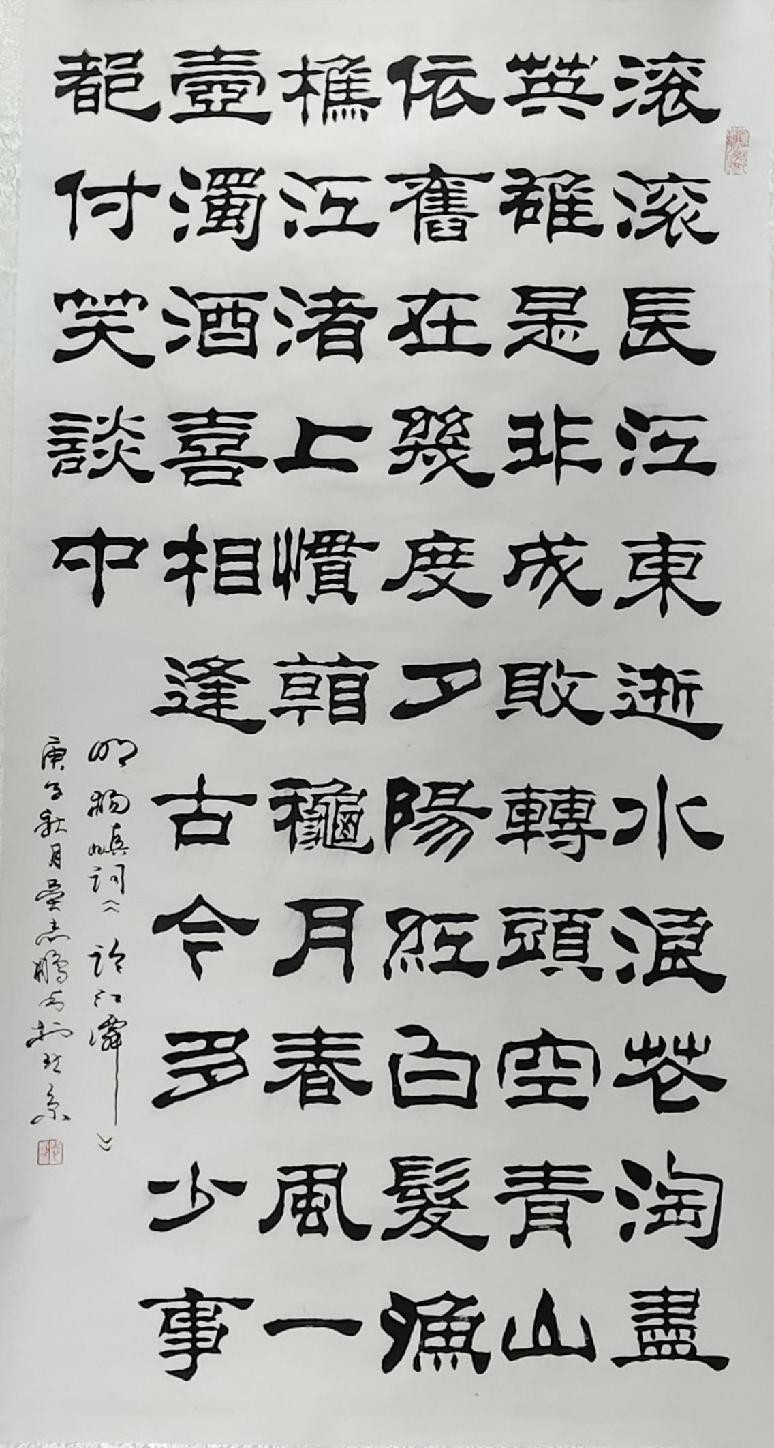 滚滚長江東逝水浪花淘盡
英雄是非成敗轉頭空青山
依舊在幾度夕陽紅白髮漁
樵江渚上慣看龝月春風一
壺濁酒喜相逢古今多少事
都付笑談中
明楊慎詞《臨江仙》
庚子秋月 志鵬书於北京